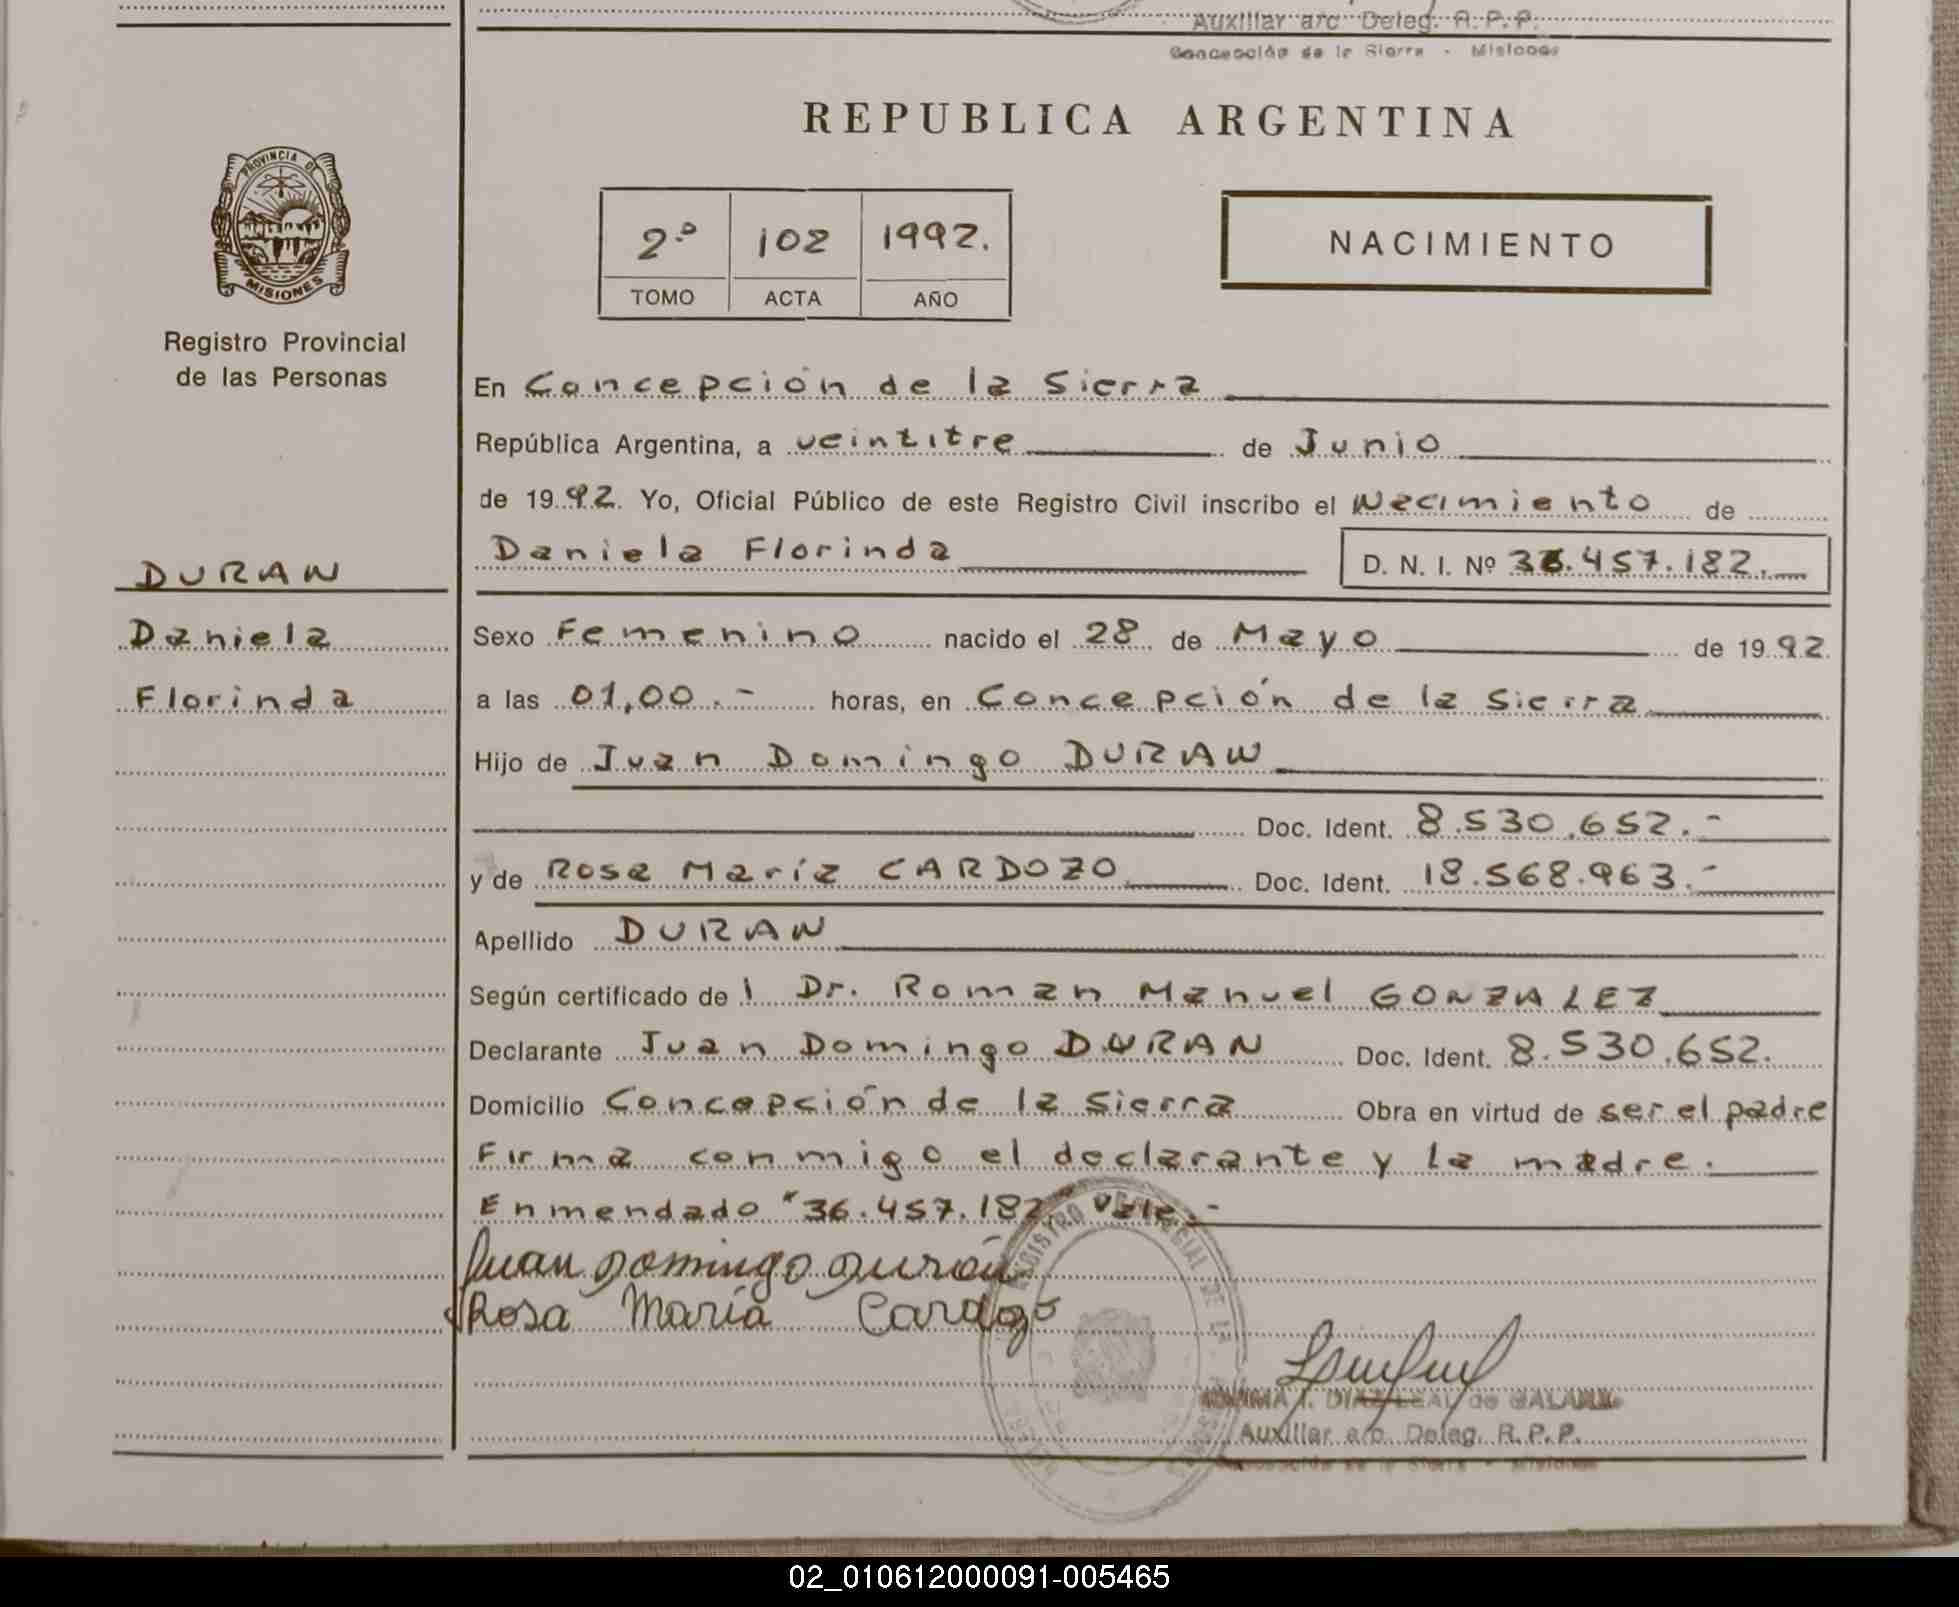 Auxiliar a/c Deleg. R. P. P.
Concepción de la Sierra - Misiones
REPUBLICA ARGENTINA
PROVINCIA DE
MISIONES
2º 102 1992.
TOMO ACTA AÑO
NACIMIENTO
Registro Provincial
de las Personas
En Concepción de la Sierra
República Argentina, a veintitre de Junio
de 1992. Yo, Oficial Público de este Registro Civil inscribo el Nacimiento de
Daniela Florinda D. N. I. Nº 36.457.182.
DURAN
Daniela
Florinda
Sexo Femenino nacido el 28 de Mayo de 1992.
a las 01,00.- horas, en Concepción de la Sierra
Hijo de Juan Domingo DURAN
Doc. Ident. 8.530.652.-
y de Rosa María CARDOZO Doc. Ident. 18.568.963.-
Apellido DURAN
Según certificado de l Dr. Roman Manuel GONZALEZ
Declarante Juan Domingo DURAN Doc. Ident. 8.530.652.
Domicilio Concepción de la Sierra Obra en virtud de ser el padre
Firma conmigo el declarante y la madre.
Enmendado "36.457.182" vale.-
Juan Domingo Durán
Rosa María Cardozo
Auxiliar a/c. Deleg. R. P. P.
Concepción de la Sierra - Misiones
02_010612000091-005465